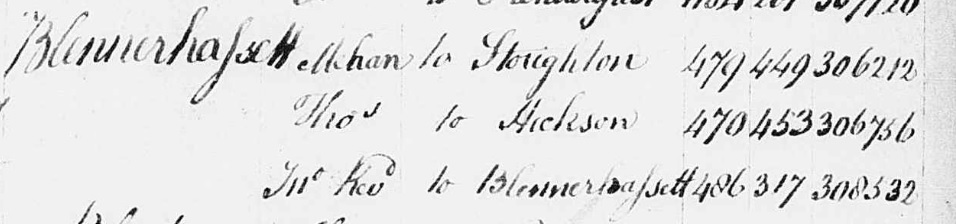 Blennerhassett Mchan to Stoughton 479 449 306212
Thos to Hickson 470 453 306756
Jno Revd to Blennerhassett 486 317 308532